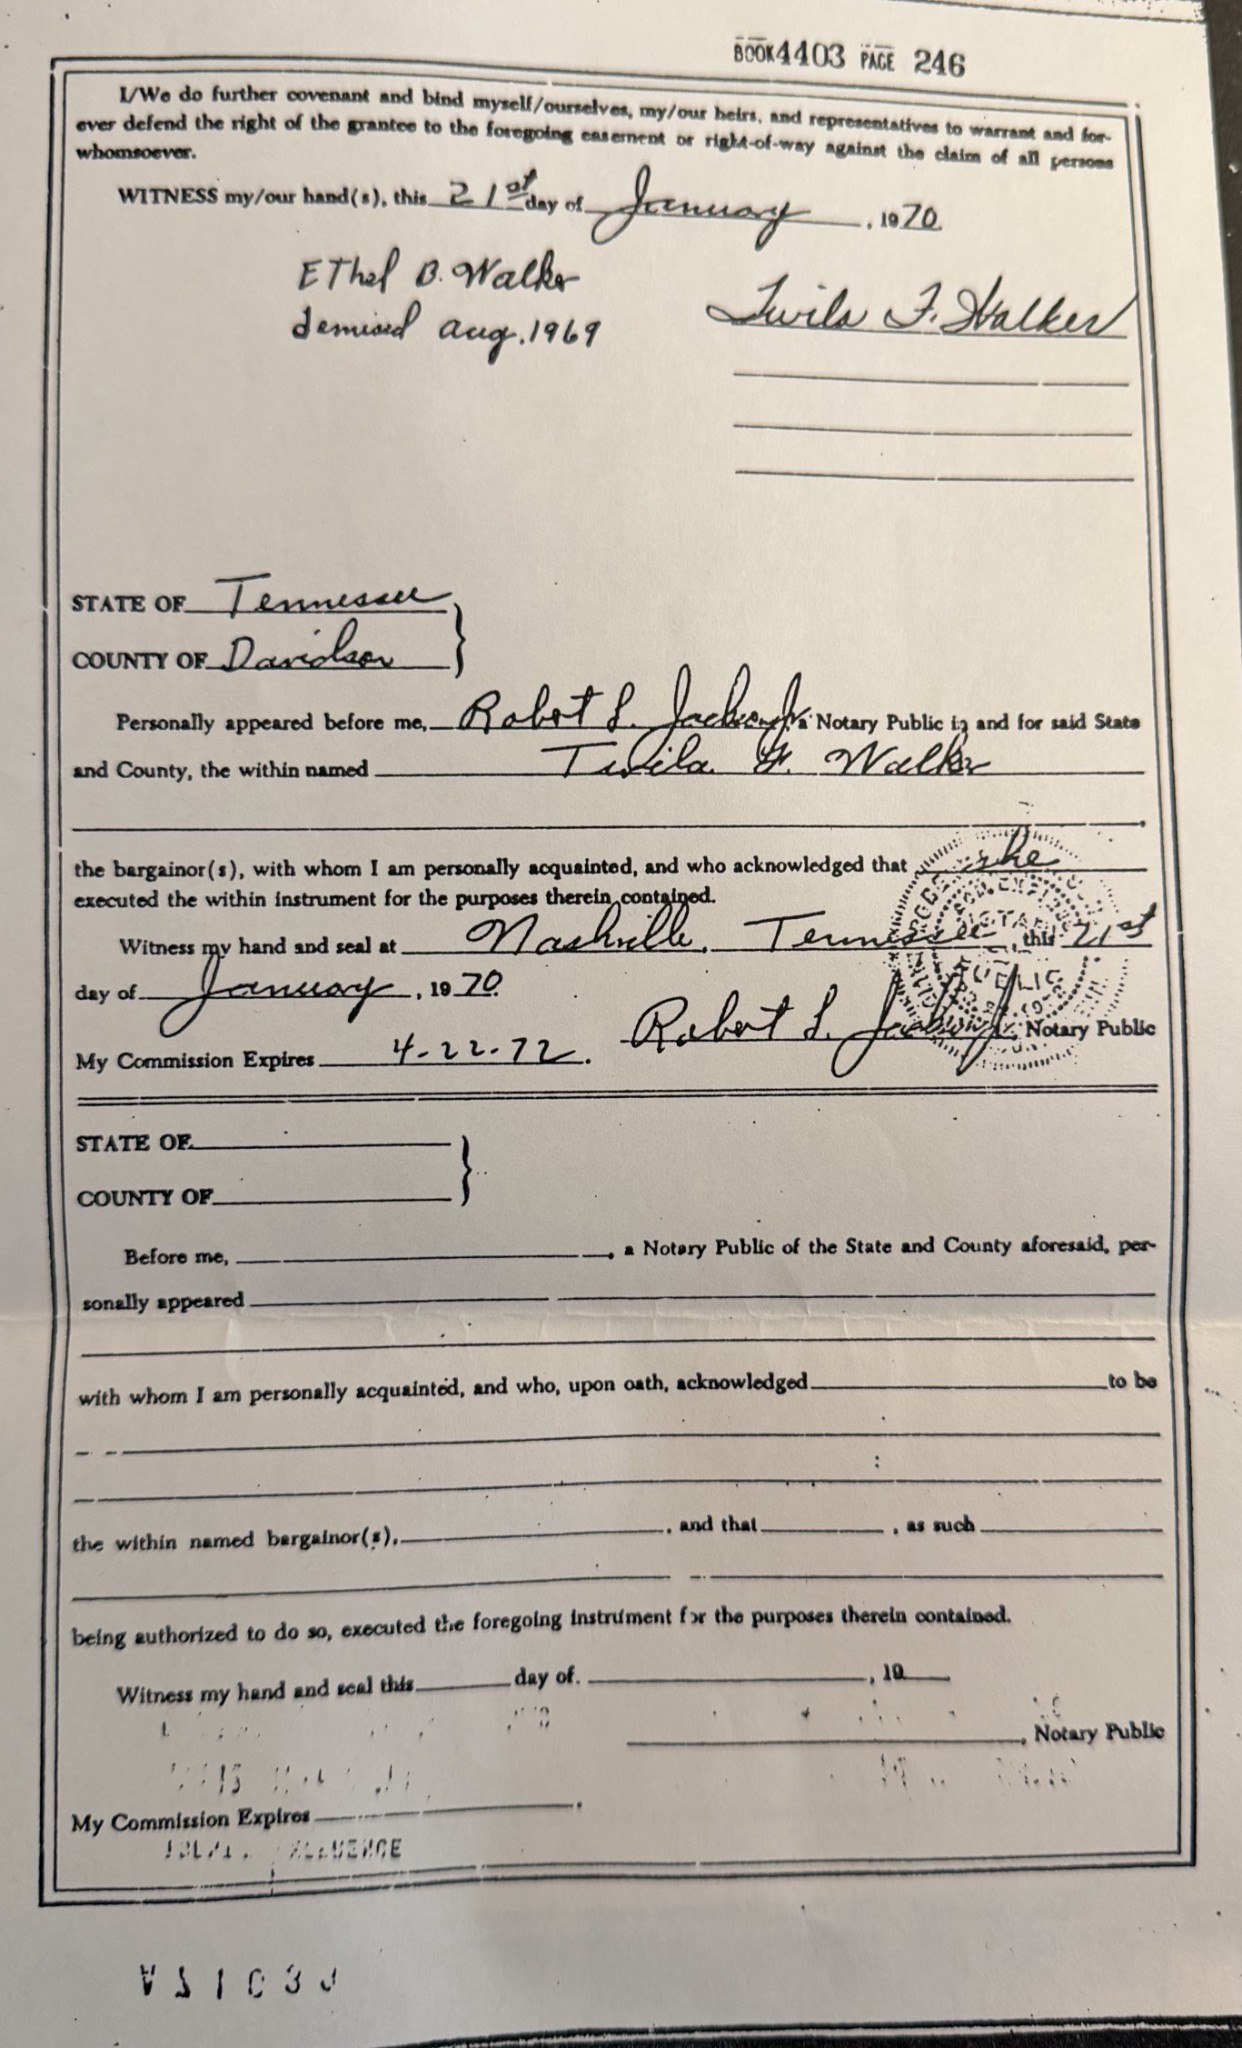 BOOK 4403 PAGE 246
I/We do further covenant and bind myself/ourselves, my/our heirs, and representatives to warrant and for-
ever defend the right of the grantee to the foregoing easement or right-of-way against the claim of all persons
whomsoever.
WITNESS my/our hand(s), this 21st day of January, 1970.
EThel B. Walker
demised Aug. 1969
Twila F. Walker
STATE OF Tennessee
COUNTY OF Davidson
Personally appeared before me, Robert L. Jackson Jr. a Notary Public in and for said State
and County, the within named Twila F. Walker
the bargainor(s), with whom I am personally acquainted, and who acknowledged that she
executed the within instrument for the purposes therein contained.
Witness my hand and seal at Nashville, Tennessee, this 21st
day of January, 1970.
Robert L. Jackson Jr. Notary Public
My Commission Expires 4-22-72.
STATE OF
COUNTY OF
Before me, , a Notary Public of the State and County aforesaid, per-
sonally appeared
with whom I am personally acquainted, and who, upon oath, acknowledged to be
the within named bargainor(s), , and that , as such
being authorized to do so, executed the foregoing instrument for the purposes therein contained.
Witness my hand and seal this day of , 19
, Notary Public
My Commission Expires .